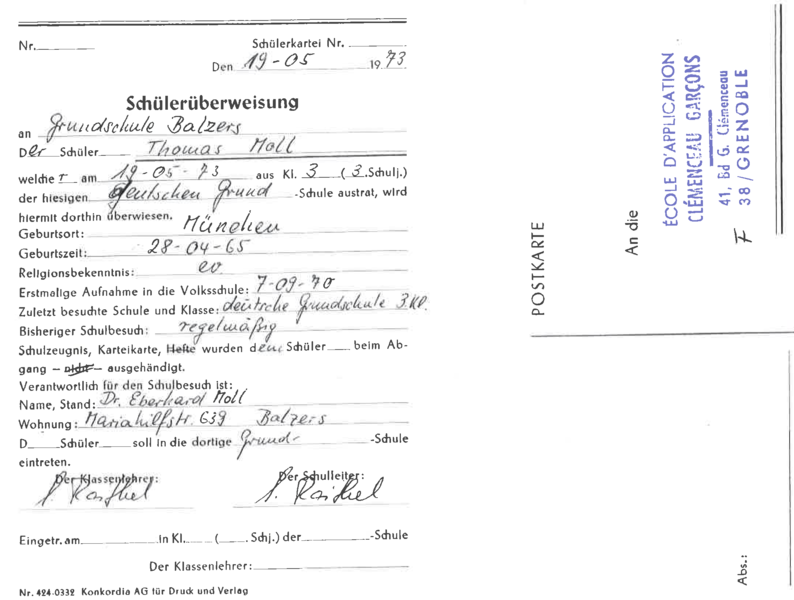 Nr.
Schülerkartei Nr.
Den 19-05 1973
Schülerüberweisung
an Grundschule Balzers
Der Schüler Thomas Moll
welcher am 19-05-73 aus Kl. 3 (3. Schulj.)
der hiesigen deutschen Grund-Schule austrat, wird
hiermit dorthin überwiesen.
Geburtsort: München
Geburtszeit: 28-04-65
Religionsbekenntnis: ev
Erstmalige Aufnahme in die Volksschule: 7-09-70
Zuletzt besuchte Schule und Klasse: deutsche Grundschule 3.Kl.
Bisheriger Schulbesuch: regelmäßig
Schulzeugnis, Karteikarte, Hefte wurden dem Schüler beim Ab-
gang – nicht – ausgehändigt.
Verantwortlich für den Schulbesuch ist:
Name, Stand: Dr. Eberhard Moll
Wohnung: Mariahilfstr. 639 Balzers
D Schüler soll in die dortige Grund- -Schule
eintreten.
Der Klassenlehrer: Der Schulleiter:
Eingetr. am in Kl. ( Schj.) der -Schule
Der Klassenlehrer:
Nr. 424.0332 Konkordia AG für Druck und Verlag
POSTKARTE
An die
ÉCOLE D'APPLICATION
CLÉMENCEAU GARÇONS
41, Bd G. Clémenceau
38 / GRENOBLE
F
Abs.: